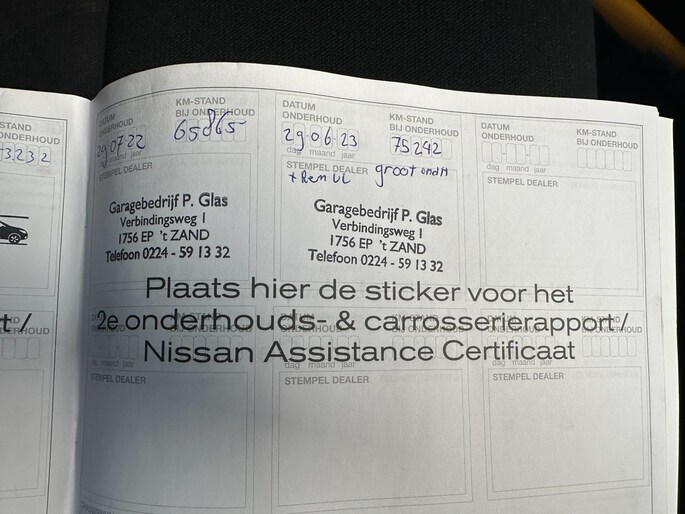 STAND
ONDERHOUD
3232
DATUM
ONDERHOUD
KM-STAND
BIJ ONDERHOUD
29 07 22
65865
dag maand jaar
STEMPEL DEALER
Garagebedrijf P. Glas
Verbindingsweg 1
1756 EP 't ZAND
Telefoon 0224 - 59 13 32
DATUM
ONDERHOUD
KM-STAND
BIJ ONDERHOUD
29-06-23
75242
dag maand jaar
STEMPEL DEALER
groot ondh
+ Rem vl
Garagebedrijf P. Glas
Verbindingsweg 1
1756 EP 't ZAND
Telefoon 0224 - 59 13 32
DATUM
ONDERHOUD
KM-STAND
BIJ ONDERHOUD
dag maand jaar
STEMPEL DEALER
t /
Plaats hier de sticker voor het
2e onderhouds- & carrosserierapport /
Nissan Assistance Certificaat
dag maand jaar
STEMPEL DEALER
dag maand jaar
STEMPEL DEALER
dag maand jaar
STEMPEL DEALER